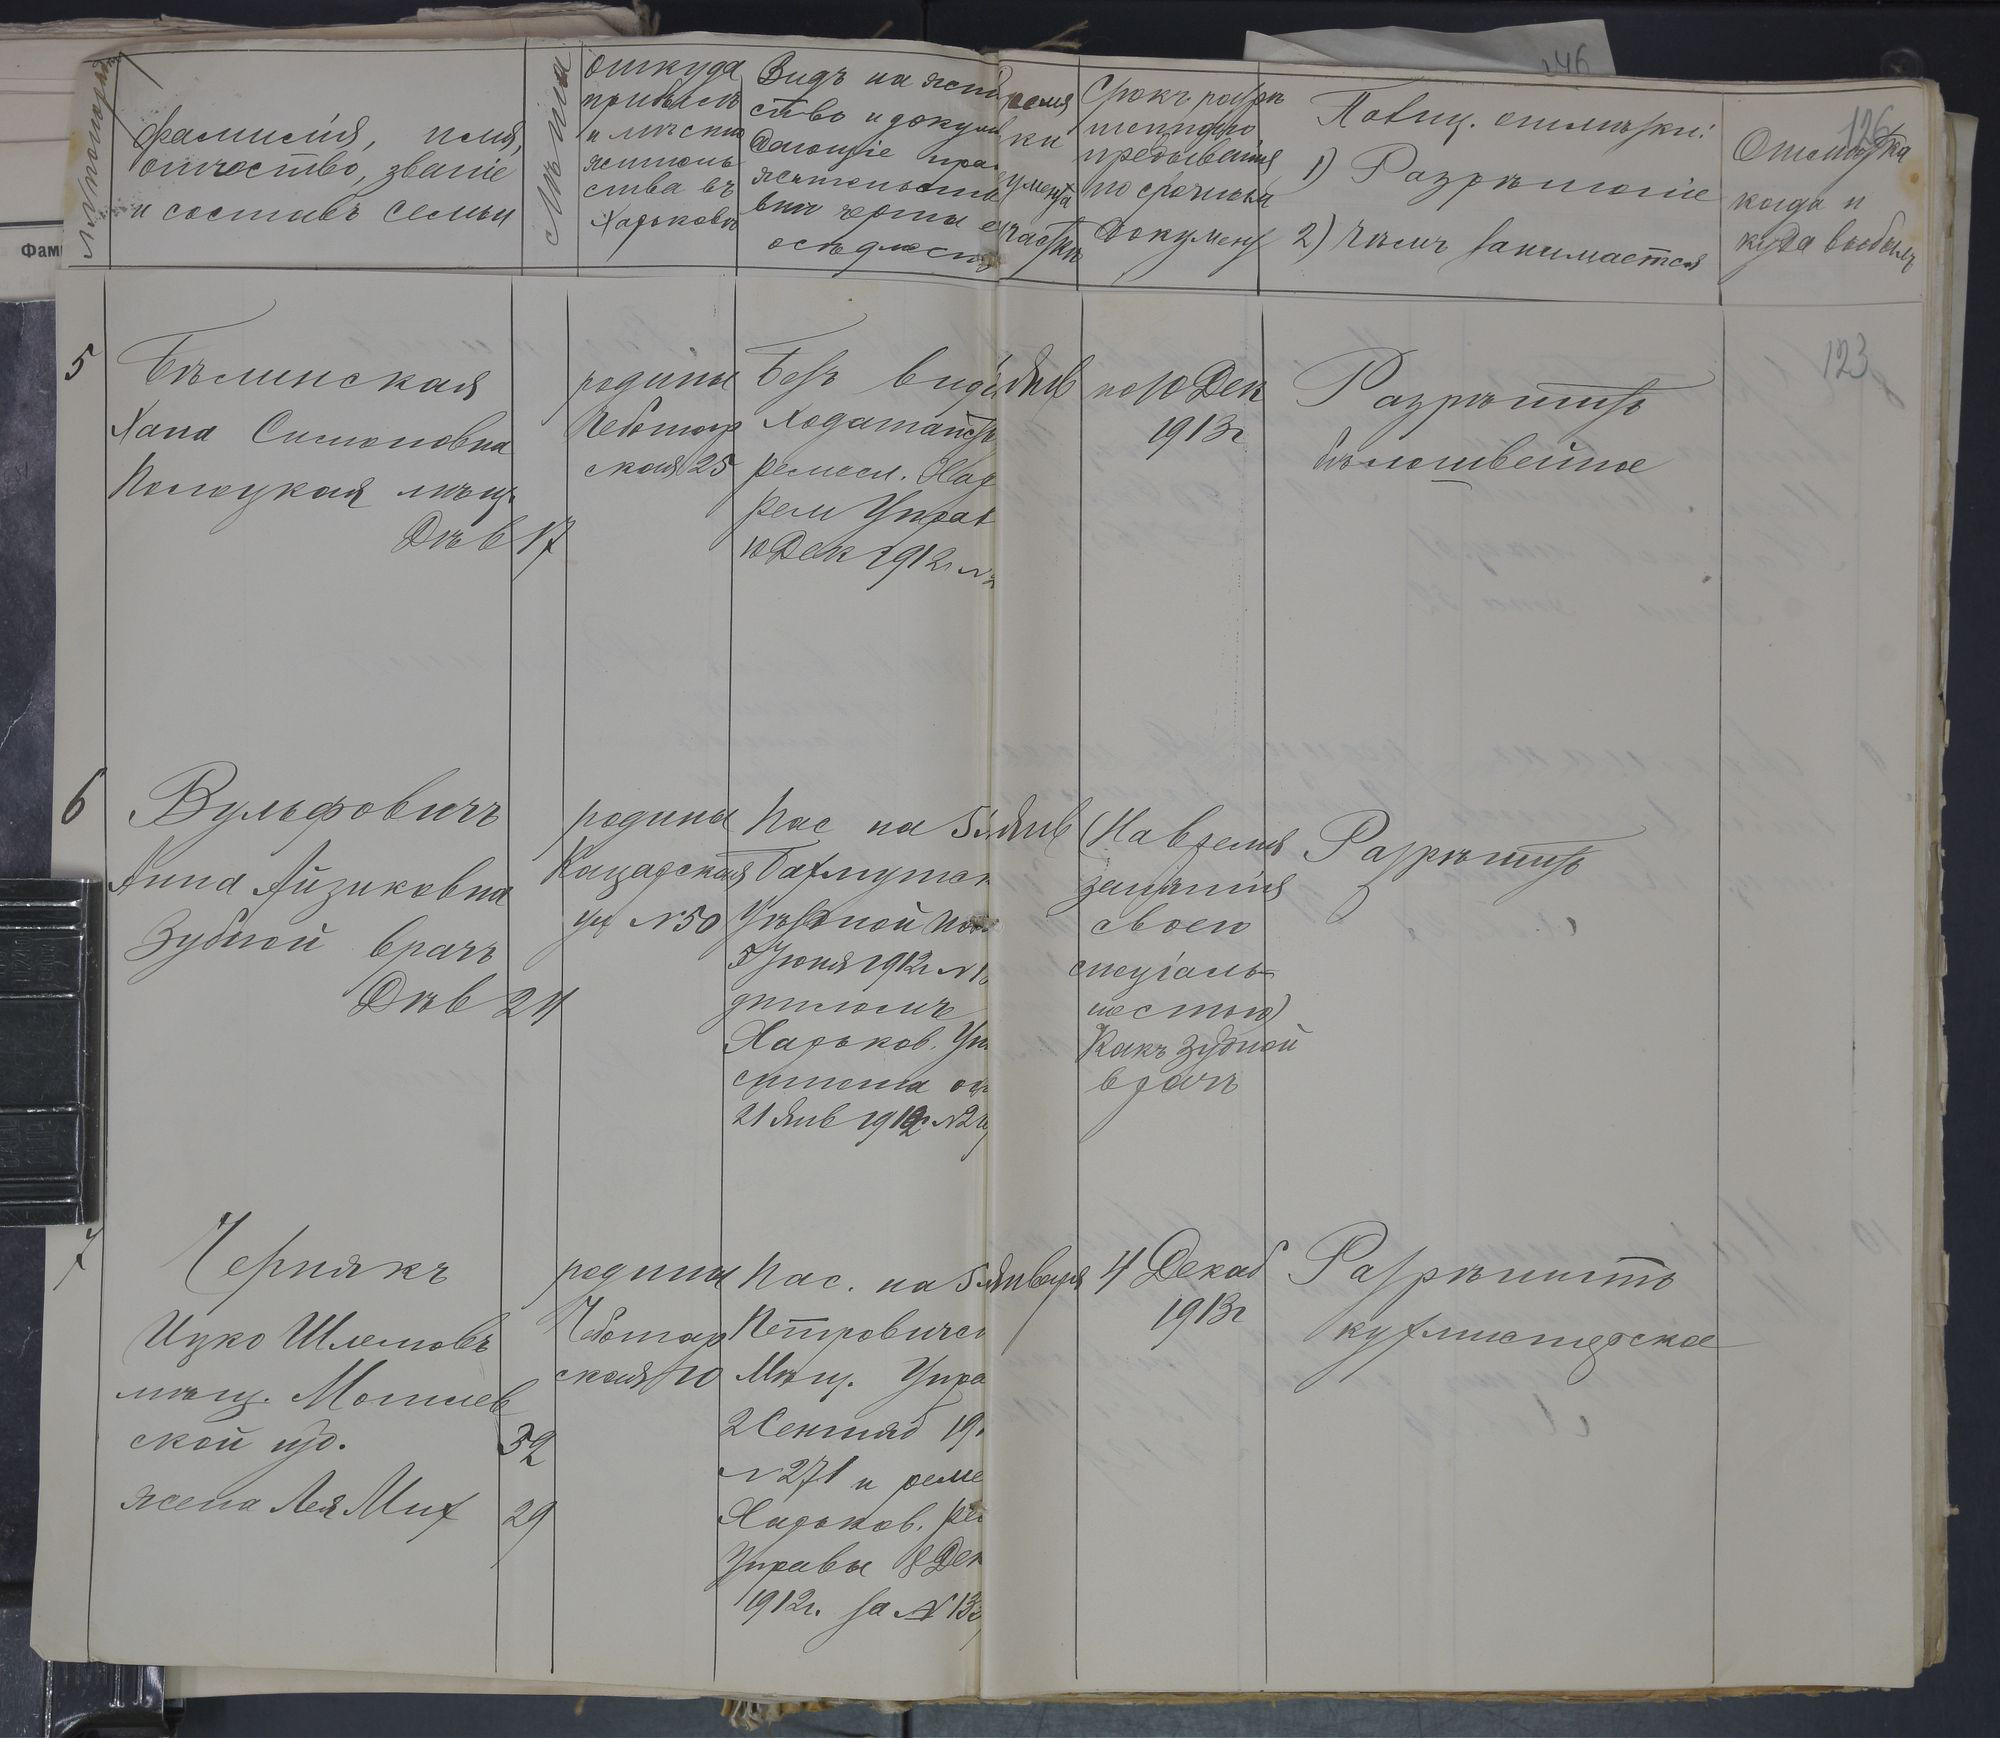 146
126
123
Фам
№№ по поряд
Фамилія, имя,
отчество, званіе
и составъ семьи
Лѣта
Откуда
прибылъ
и мѣсто
житель
ства въ
Харьковѣ
Видъ на жит
ство и докум
дающіе пра
жительств
внѣ черты
осѣдлос
ремя
ки
умента
частк
Срокъ разрѣ
шеннаго
пребыванія
по срочным
документ
Полиц. отмѣтки:
1) Разрѣшеніе
2) Чѣмъ занимается
Отмѣтка
когда и
куда выбылъ
5
Бѣлинская
Хана Симоновна
Полоцкая мѣщ.
Дѣв 17
родины
Чеботар
ская 25
Безъ вида
Ходатайств
ремесл. Хар
рем Управ
10 Дек 1912г №
Янв
по 10 Дек
1913г
Разрѣшить
Бѣлошвейное
6
Вульфовичъ
Анна Айзиковна
Зубной врачъ
Дѣв 24
родины
Кацарская
ул №50
Пас на 5 л
Бахмутск
Уѣздной
5 Іюня 1912г №1
дипломъ
Харьков. Ун
ситета от
21 Янв 1912г №2
Янв
(На время
занятія
своею
спеціаль
ностью)
Какъ зубной
врачъ
Разрѣшить
7
Чернякъ
Ицко Шлемовъ
мѣщ. Могилев
ской губ. 32
жена Лея Мих 29
родины
Чеботар
ская 10
Пас. на 5
Петровичс
Мѣщ. Упра
2 Сентяб 19
№271 и реме
Харьков. ре
Управы 8 Дек
1912г. за №13
Января
4 Декаб
1913г
Разрѣшить
кухмистерское